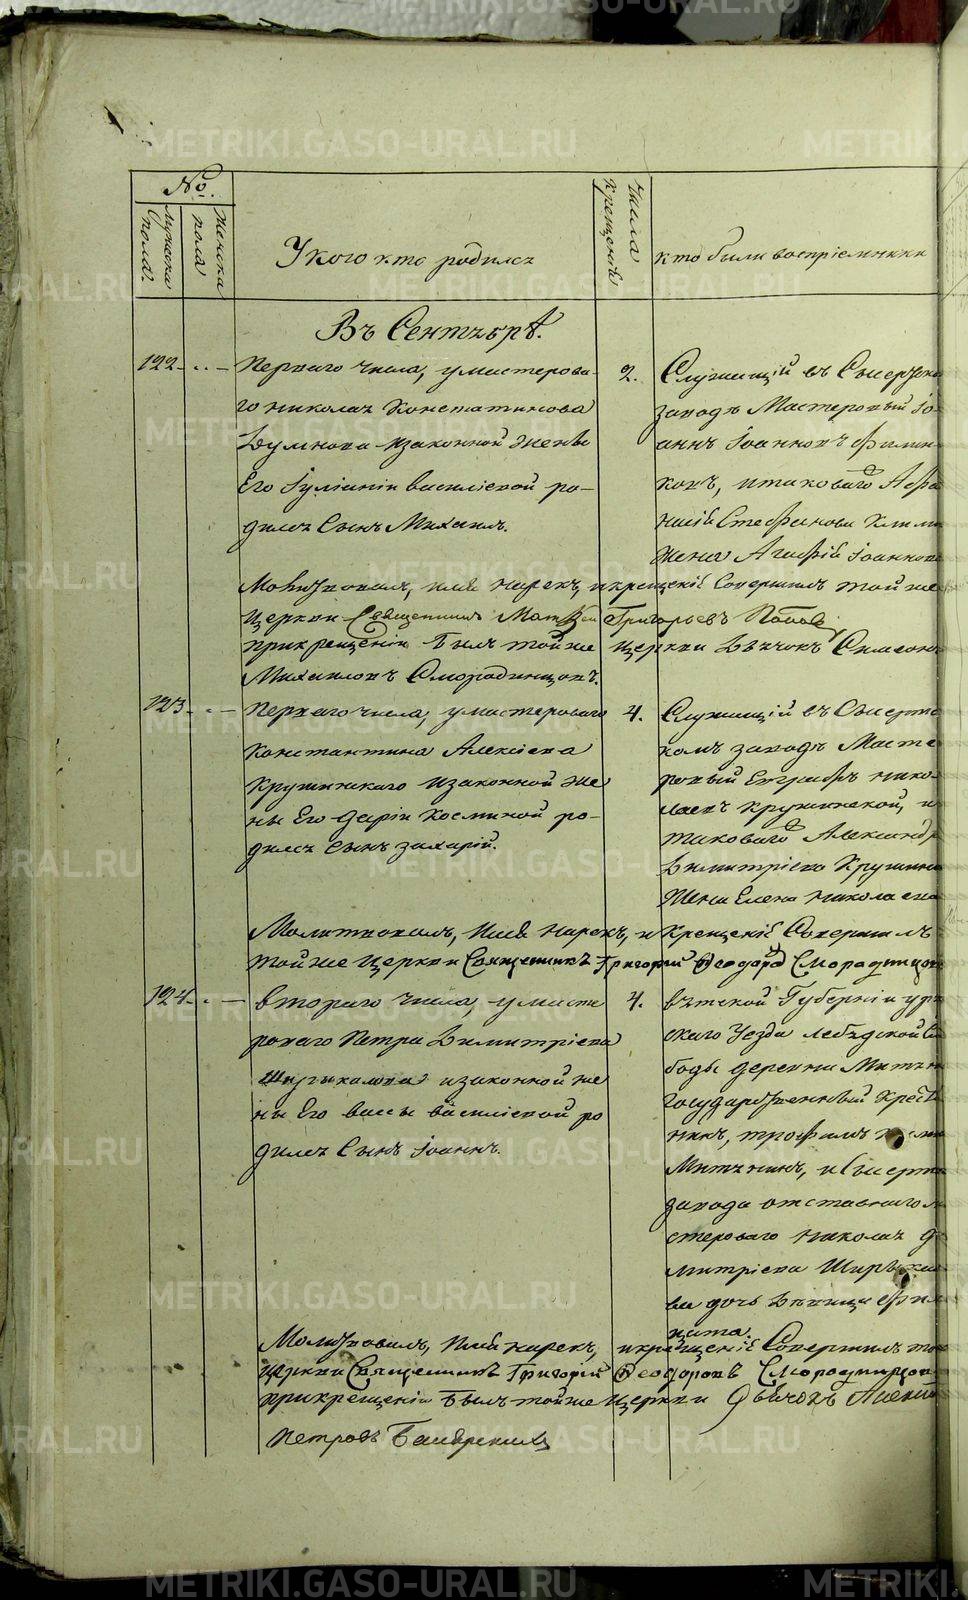 №
Мужеска пола.
Женска пола
У кого кто родился
Числа крещенiй
кто были воспрiемники
Въ Сентябрѣ.
122
Перваго числа, у мастерова-
го Николая Константинова
и законной жены
Его Iулiанiи Василiевой ро-
дился Сынъ Михаилъ.
2.
Служащiй въ
заводѣ Мастеровый Iо-
аннъ Iоанновъ
ковъ, и таковаго Афа
насiй Стефанова
жена Агафiя Iоаннова
Молитвовалъ, имя нарекъ, и крещенiе Совершилъ той же
Церкви Священникъ Матвей Григорьевъ Поповъ
при крещенiи былъ той же церкви Дьячокъ Симеонъ
Михаиловъ Смородинцовъ.
123
Перваго числа, у мастероваго
Константина Алексiева
Кружинскаго и законной же
ны Его Дарiи Косминой ро-
дился Сынъ Захарiй.
4.
Служащiй въ Сысертс
комъ заводѣ Масте
ровый Евграфъ Нико-
лаевъ Кружинской, и
таковаго Александр
Димитрiева Кружин
жена Елена Николаева
Молитвовалъ, Имя нарекъ, и Крещенiе Совершилъ
той же церкви Священникъ Григорiй Ѳеодоровъ Смородинцов
124
Втораго числа, у масте
роваго Петра Димитрiева
и законной же
ны Его Вассы Василiевой ро
дился Сынъ Iоаннъ.
4.
Вятской Губернiи Ур
скаго Уезда Лебяской Сло
боды деревни
Государственный Крестья
нинъ, Трофимъ
и Сысерт
завода отставнаго м
стероваго Николая Д
митрiева
ва дочь дѣвица
Молитвовалъ, Имя нарекъ, и крещенiе Совершилъ той
церкви Священникъ Григорiй Ѳеодоровъ Смородинцов
при крещенiи былъ той же церкви Дьячокъ Алексiй
Петровъ
METRIKI.GASO-URAL.RU